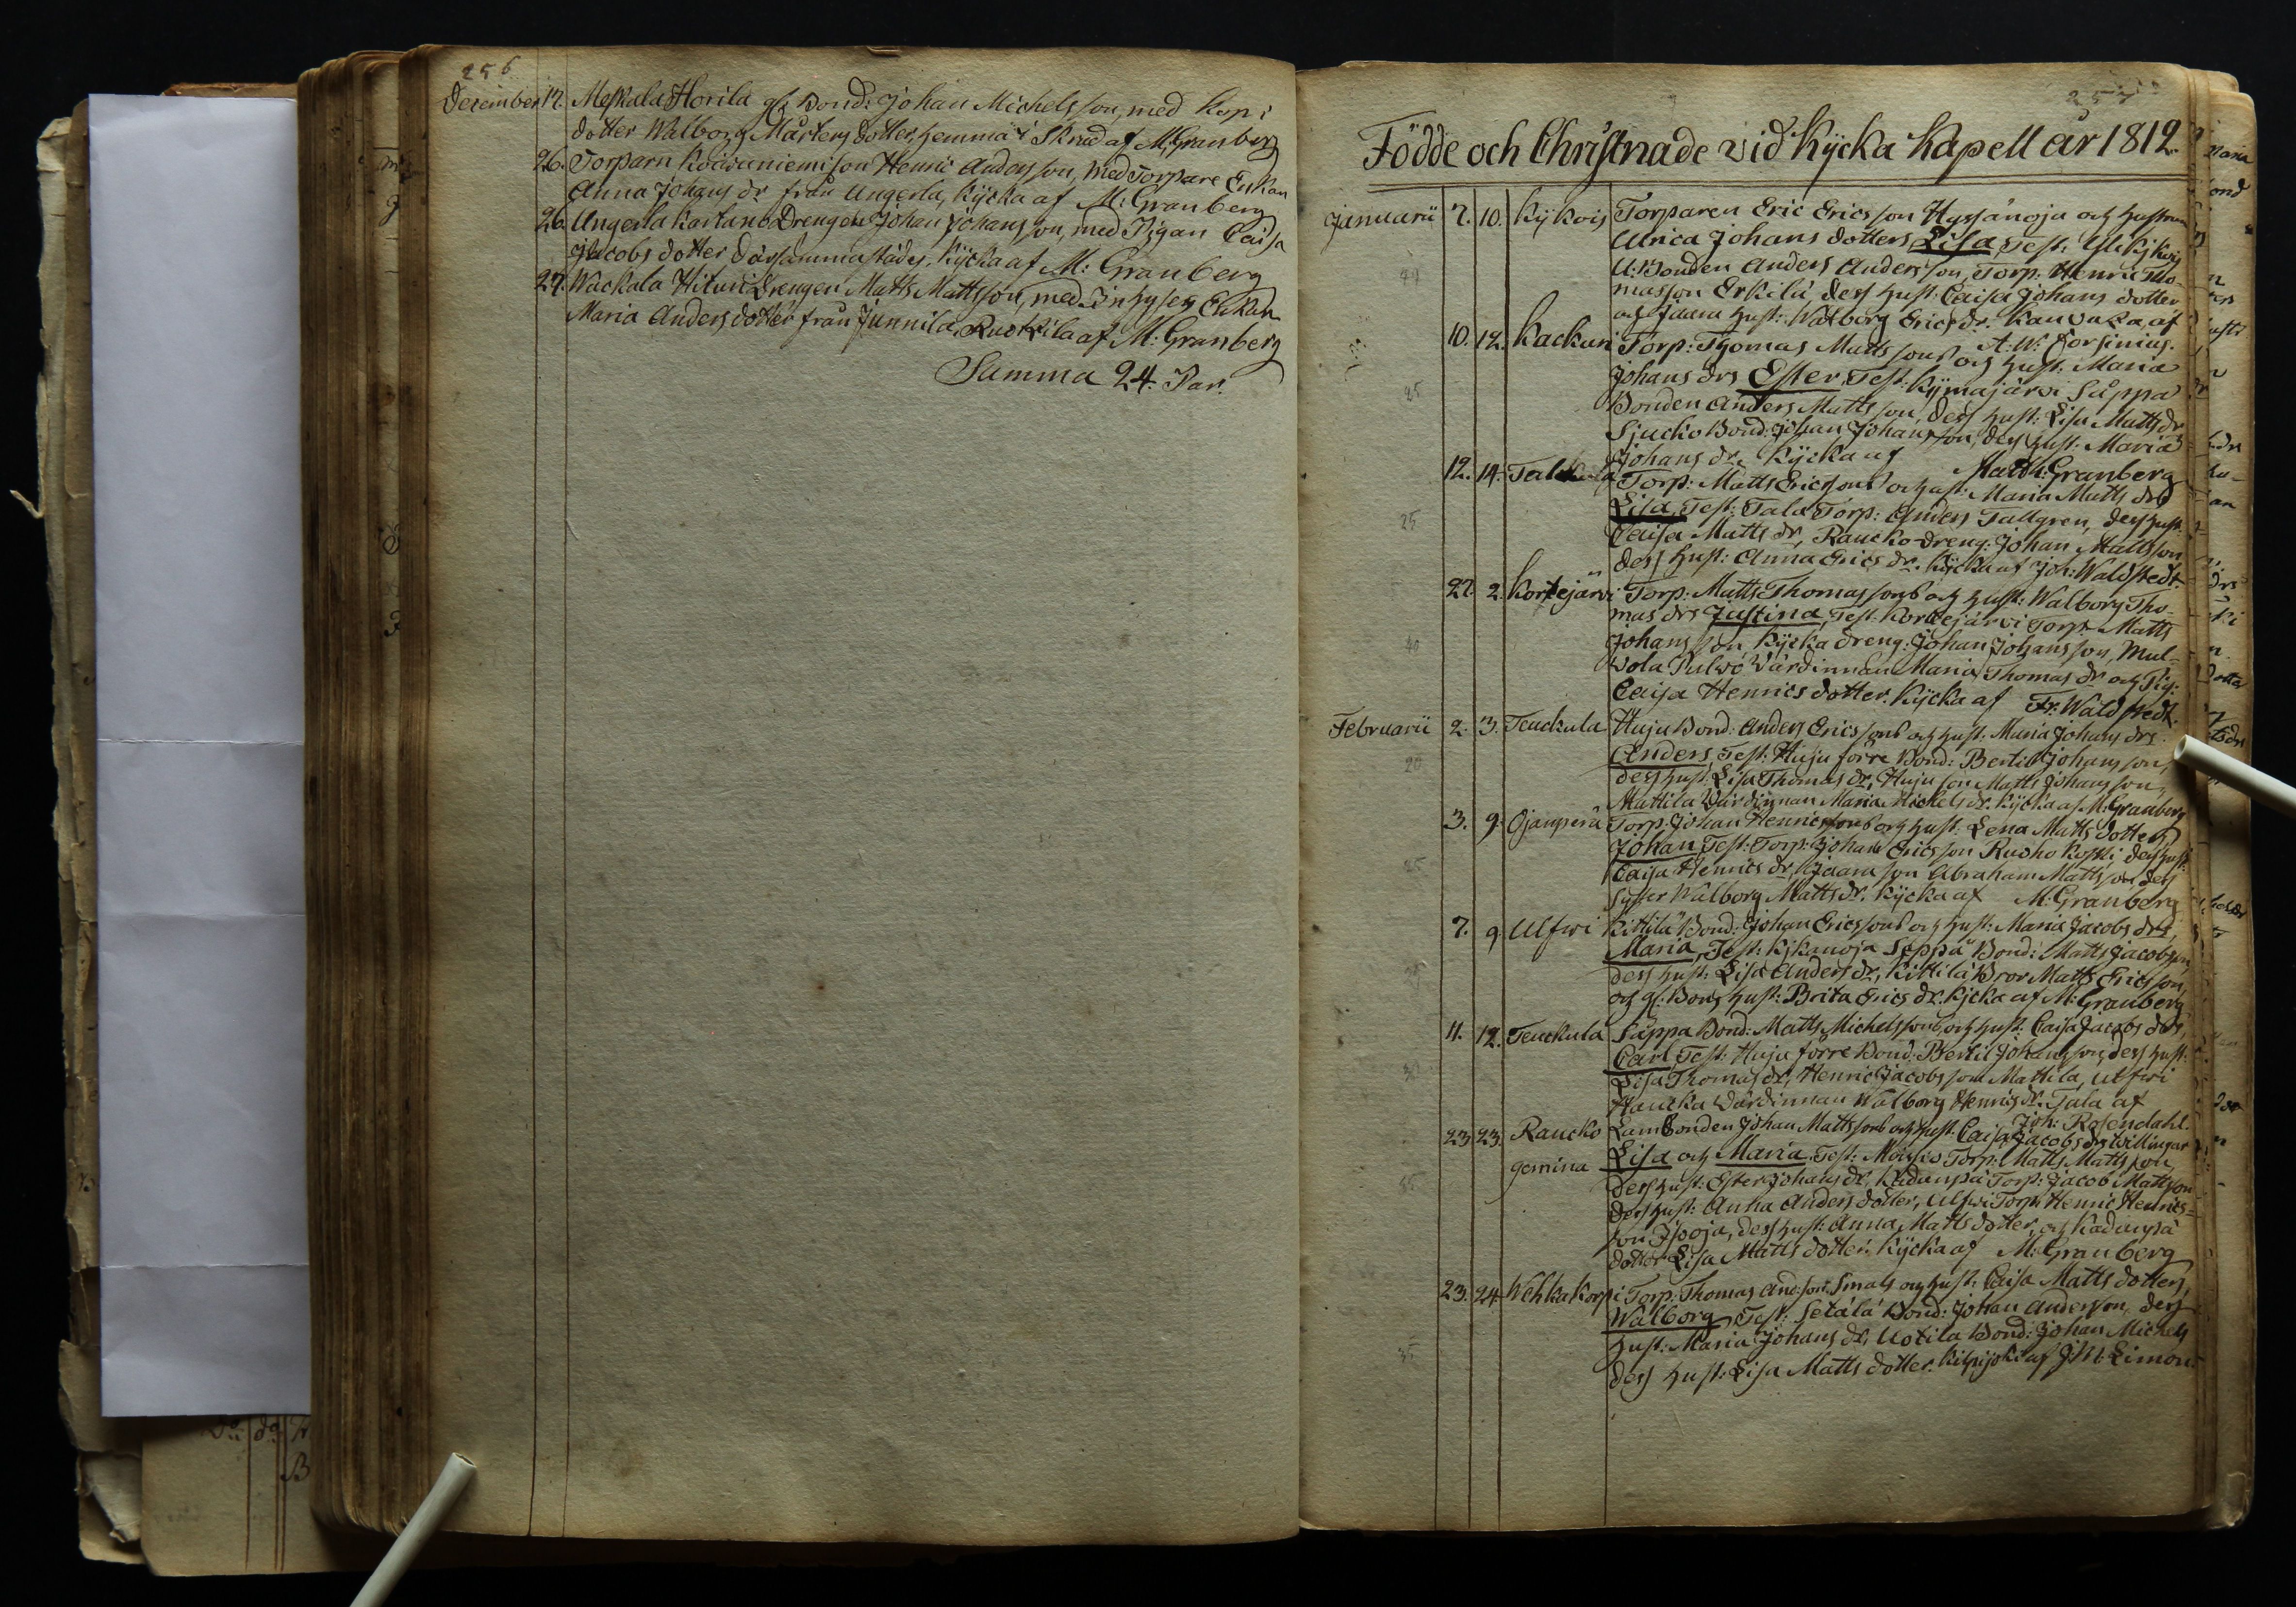 256
December 12. Meskala Horila gl. Bond: Johan Michelsson, med Korpi
dotter Walborg Mårtens dotter, hemma i Skrud af M. Granberg
26. Torparn Koivuniemi son Henric Andersson, med Torpare Enkan
Anna Johans dr från Ungerla, Kycka af M: Granberg
26. Ungerla Kartano Drengen Johan Johansson, med Pigan Caisa
Jacobs dotter därsammastädes, Kycka af M: Granberg
27. Wackala Hituri Drengen Matts Mattsson, med Inhyses Enkan
Maria Anders dotter från Junnila, Ruokila af M: Granberg
Summa 24. Par.
257
Födde och Christnade vid Kycka Kapell år 1812.
Januarii 7. 10. Kijkois Torparen Eric Ericsson Hyrsänoja och hustrun
Ulrica Johans dotters Lisa, Test:
U: Bonden Anders Andersson, Torp: Henric Tho-
masson Erkilä, dess hust: Caisa Johans dotter
och hust: Walborg Erics dr. af
A: W: Forsinius.
10. 12. Kackuri Torp: Thomas Mattssons och hust: Maria
Johans drs Ester, Test: Kymajärvi Säppä
Bonden Anders Mattsson, dess hust: Lisa Matts dr
Sjucko Bond: Johan Johansson, dess hust: Maria
Johans dr, Kycka af Matth: Granberg
12. 14. Talkala Torp: Matts Ericssons och hust: Maria Matts drs
Lisa, Test: Tala Torp: Anders Tallgren, dess hust:
Caisa Matts dr, Raucko dreng: Johan Mattsson
dess hust: Anna Erics dr. Kycka af Joh: Waldstedt.
27. 2. Kortejärvi Torp: Matts Thomassons och hust: Walborg Tho-
mas drs Justina, Test: Kortejärvi Torp: Matts
Johansson Kycka dreng: Johan Johansson, Mul-
vola Pulwo Värdinnan Maria Thomas dr och Pig:
Caisa Henrics dotter. Kycka af Fr: Waldstedt.
Februarii 2. 3. Teuckula Huju Bond: Anders Ericssons och hust: Maria Johans drs
Anders, Test: Huju förre Bond: Bertil Johansson,
dess hust: Lisa Thomas dr, Huju son Matts Johansson,
Mattila Värdinnan Maria Michels dr. Kycka af M: Granberg
3. 9. Ojanperä Torp: Johan Henricssons och hust: Lena Matts dotters
Johan, Test: Torp: Johan Ericsson Ruoho Koski, dess hust:
Caisa Henrics dr, Ojaara son Abraham Mattsson, dess
syster Walborg Matts dr. Kycka af M: Granberg
7. 9. Ulfwi Kittilä Bond: Johan Ericssons och hust: Maria Jacobs drs,
Maria, Test: Kykänoja Seppä Bond: Matts Jacobsson,
dess hust: Lisa Anders dr, Kittilä Bror Matts Ericsson,
och gl: Bons hust: Brita Erics dr. Kycka af M: Granberg
11. 12. Teuckula Säppä Bond: Matts Michelssons och hust: Caisa Jacobs drs,
Carl, Test: Huju förre Bond: Bertil Johansson, dess hust:
Lisa Thomas dr, Henric Jacobsson Mattila, Ulfwi
Haucka Värdinnan Walborg Henrics dr. Tala af
Joh: Rosendahl.
23 23. Raucko Lambonden Johan Mattssons och hust: Caisa Jacobs drs Twillingar
gemina Lisa och Maria, Test: Torp: Matts Mattsson,
dess hust: Ester Johans dr, Kadunpä Torp: Jacob Mattsson
dess hust: Anna Anders dotter, Ulfwi Torp: Henric Henrics-
son Isooja, dess hust: Anna Matts dotter, och Kadunpä
dotter Lisa Matts dotter. Kycka af M: Granberg
23. 24. Wehkakorpi Torp: Thomas Anderson Smals och hust: Caisa Matts dotters,
Walborg, Test: Setälä Bond: Johan Andersson, dess
hust: Maria Johans dr, Uotila Bond: Johan Michels
dess hust: Lisa Matts dotter. Kilpijoki af J: M: Limon: